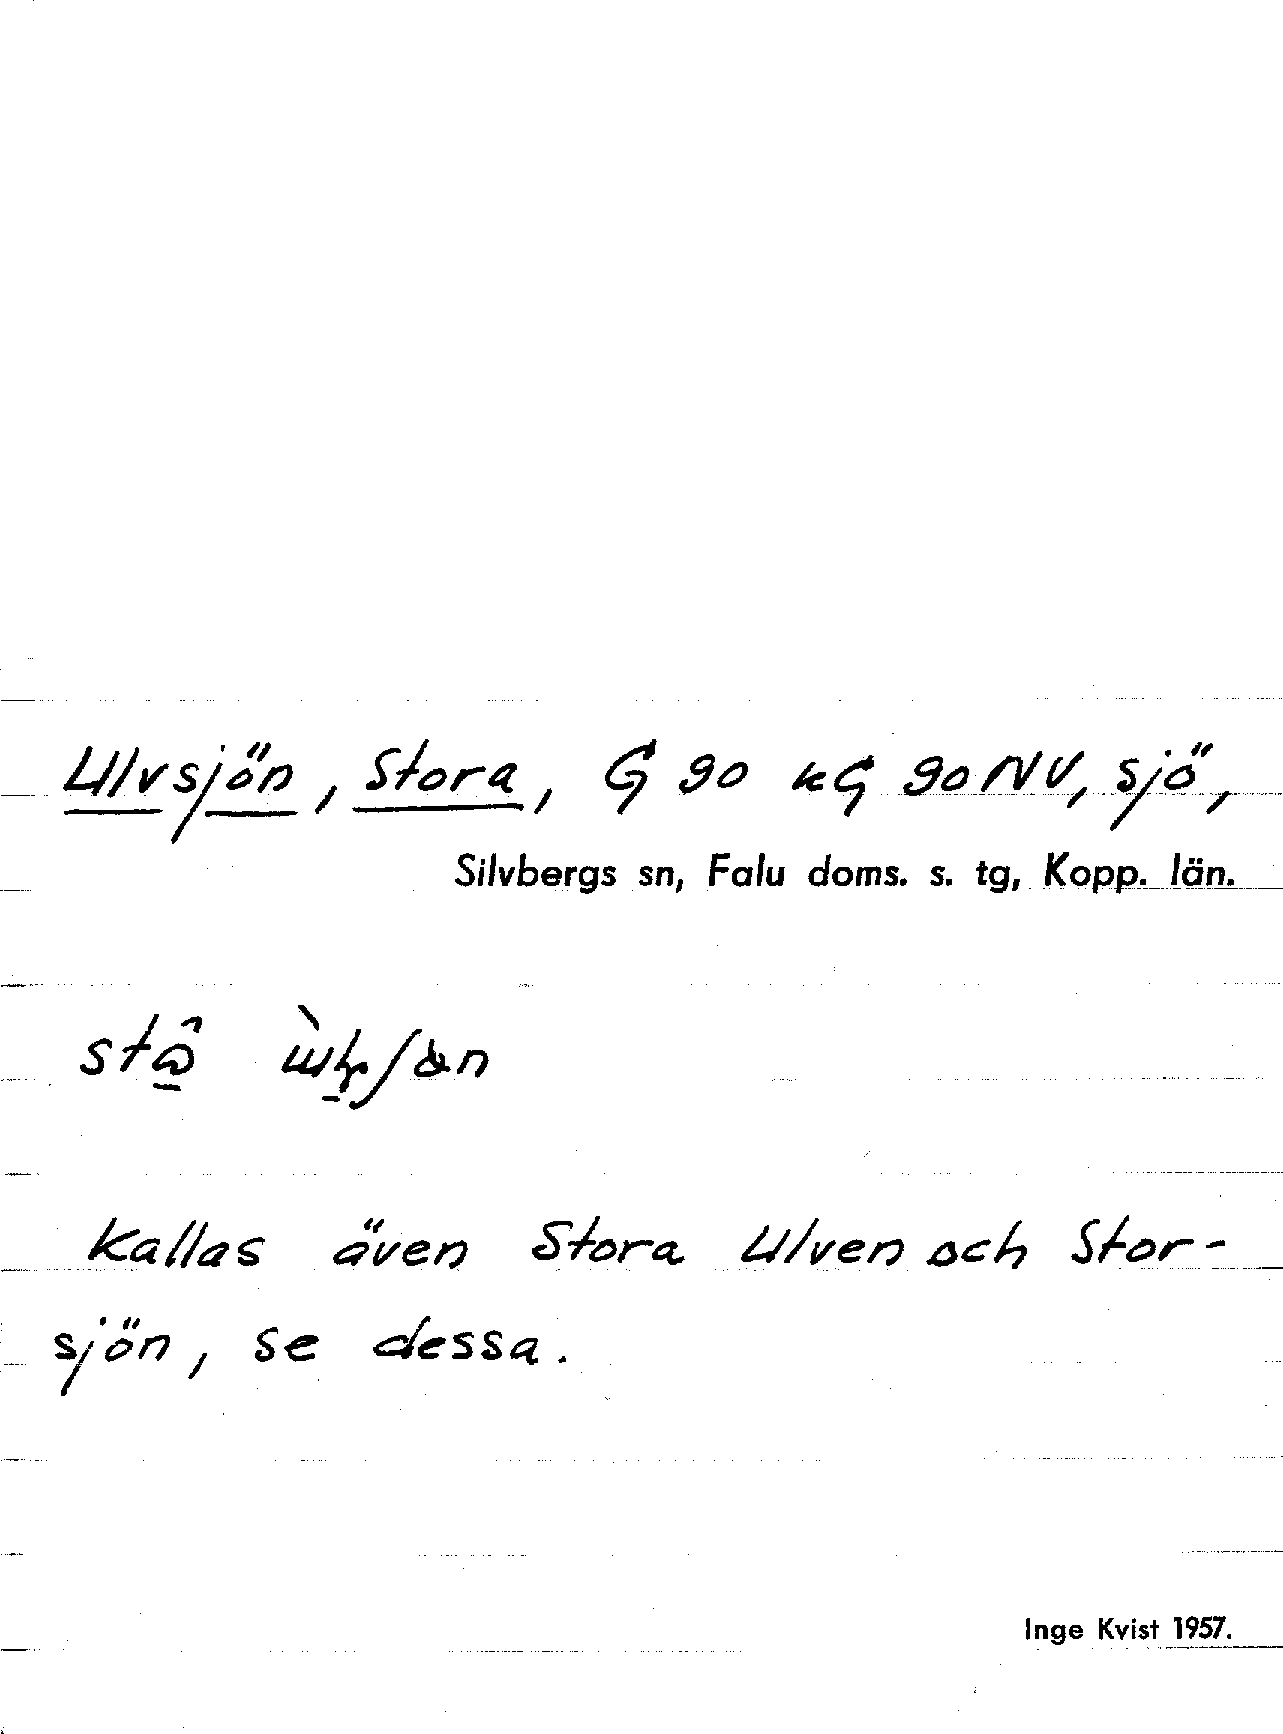 Ulvsjön, Stora, G 90 kG 90 NV, sjö,
Silvbergs sn, Falu doms. s. tg, Kopp. län.
Kallas även Stora Ulven och Stor-
sjön, se dessa.
Inge Kvist 1957.